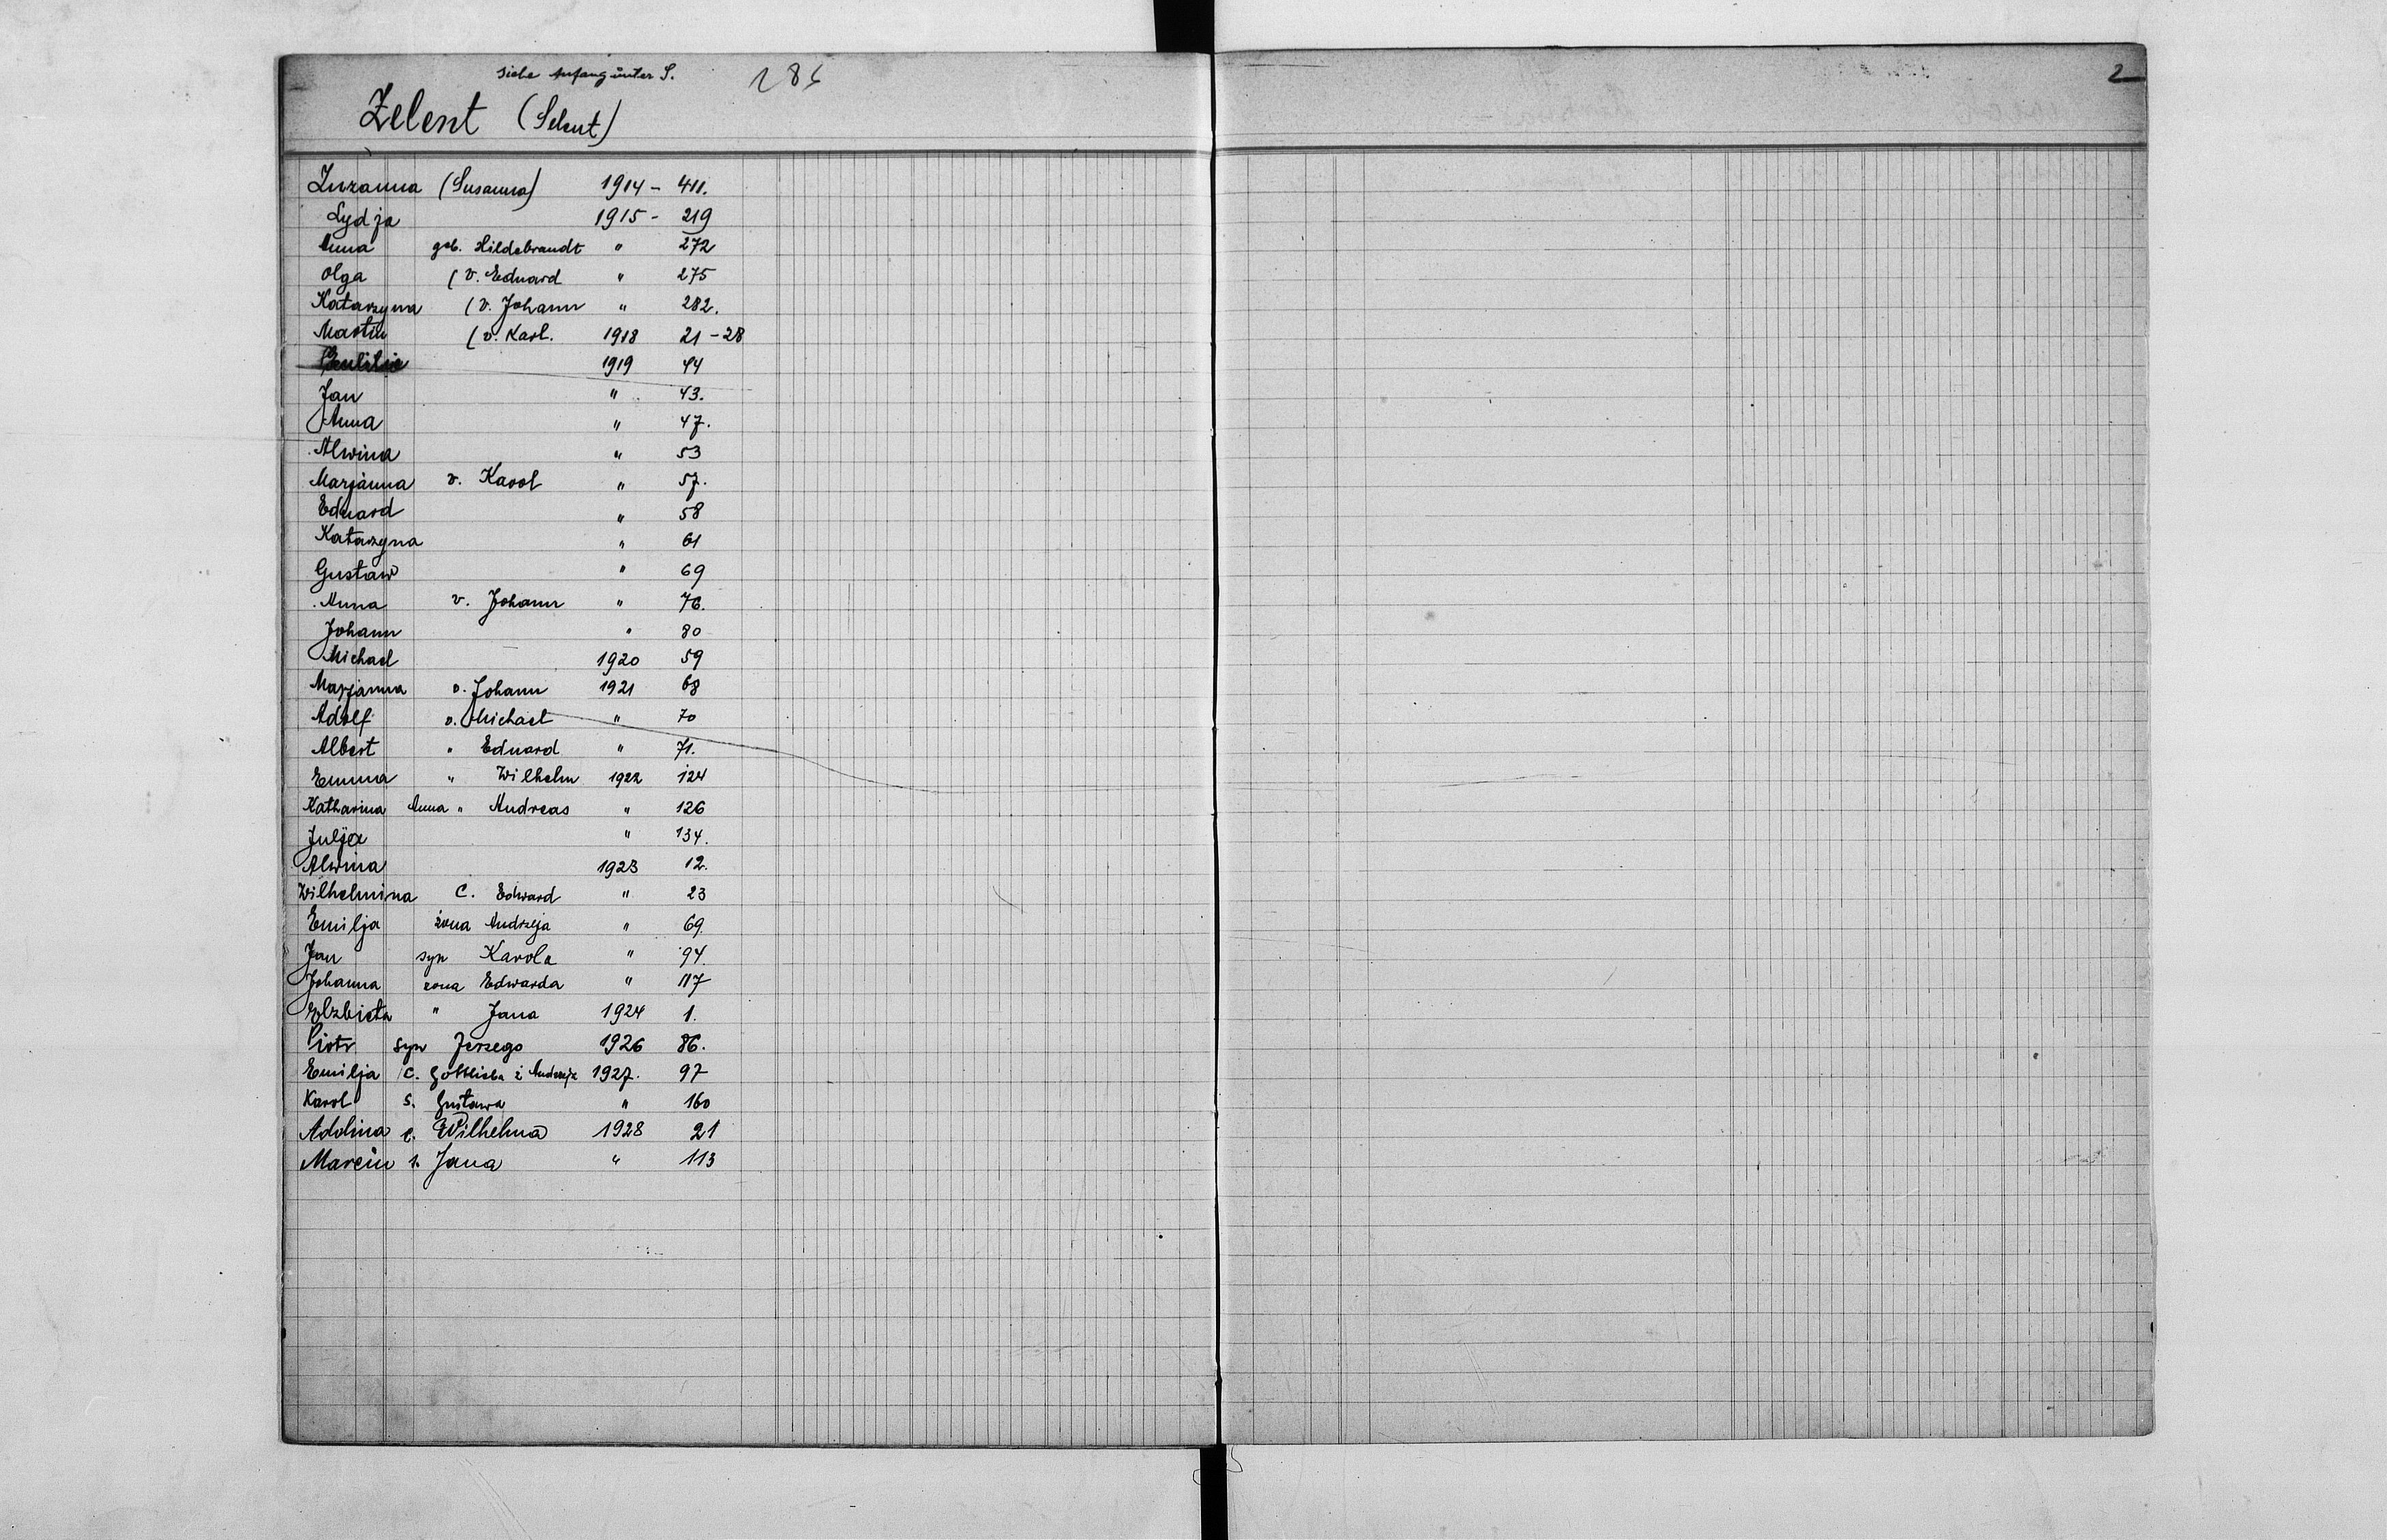 siehe Anfang unter S.
286
2
Zelent (Selent)
Zuzanna (Susanna) 1914 - 411.
Lydja 1915 - 219
Anna geb. Hildebrandt " 272
Olga (v. Eduard " 275
Katarzyna (v. Johann " 282.
Martin (v. Karl. 1918 21 - 28
1919 44
Jan " 43.
Anna " 47.
Alwina " 53
Marjanna v. Karol " 57.
Eduard " 58
Katarzyna " 61
Gustaw " 69
Anna v. Johann " 76.
Johann " 80
Michael 1920 59
Marjanna v. Johann 1921 68
Adolf v. Michael " 70
Albert " Eduard " 71.
Emma " Wilhelm 1922 124
Katharina Anna " Andreas " 126
Julja " 134.
Alwina 1923 12.
Wilhelmina C. Edward " 23
Emilja żona Andrzeja " 69.
Jan syn Karola " 94.
Johanna zona Edwarda " 117
Elzbieta " Jana 1924 1.
Piotr syn Jerzego 1926 86.
Emilja c. Gottlieba ż Andrzeja 1927. 97
Karol s. Gustawa " 160
Adolina c. Wilhelma 1928 21
Marcin s. Jana " 113